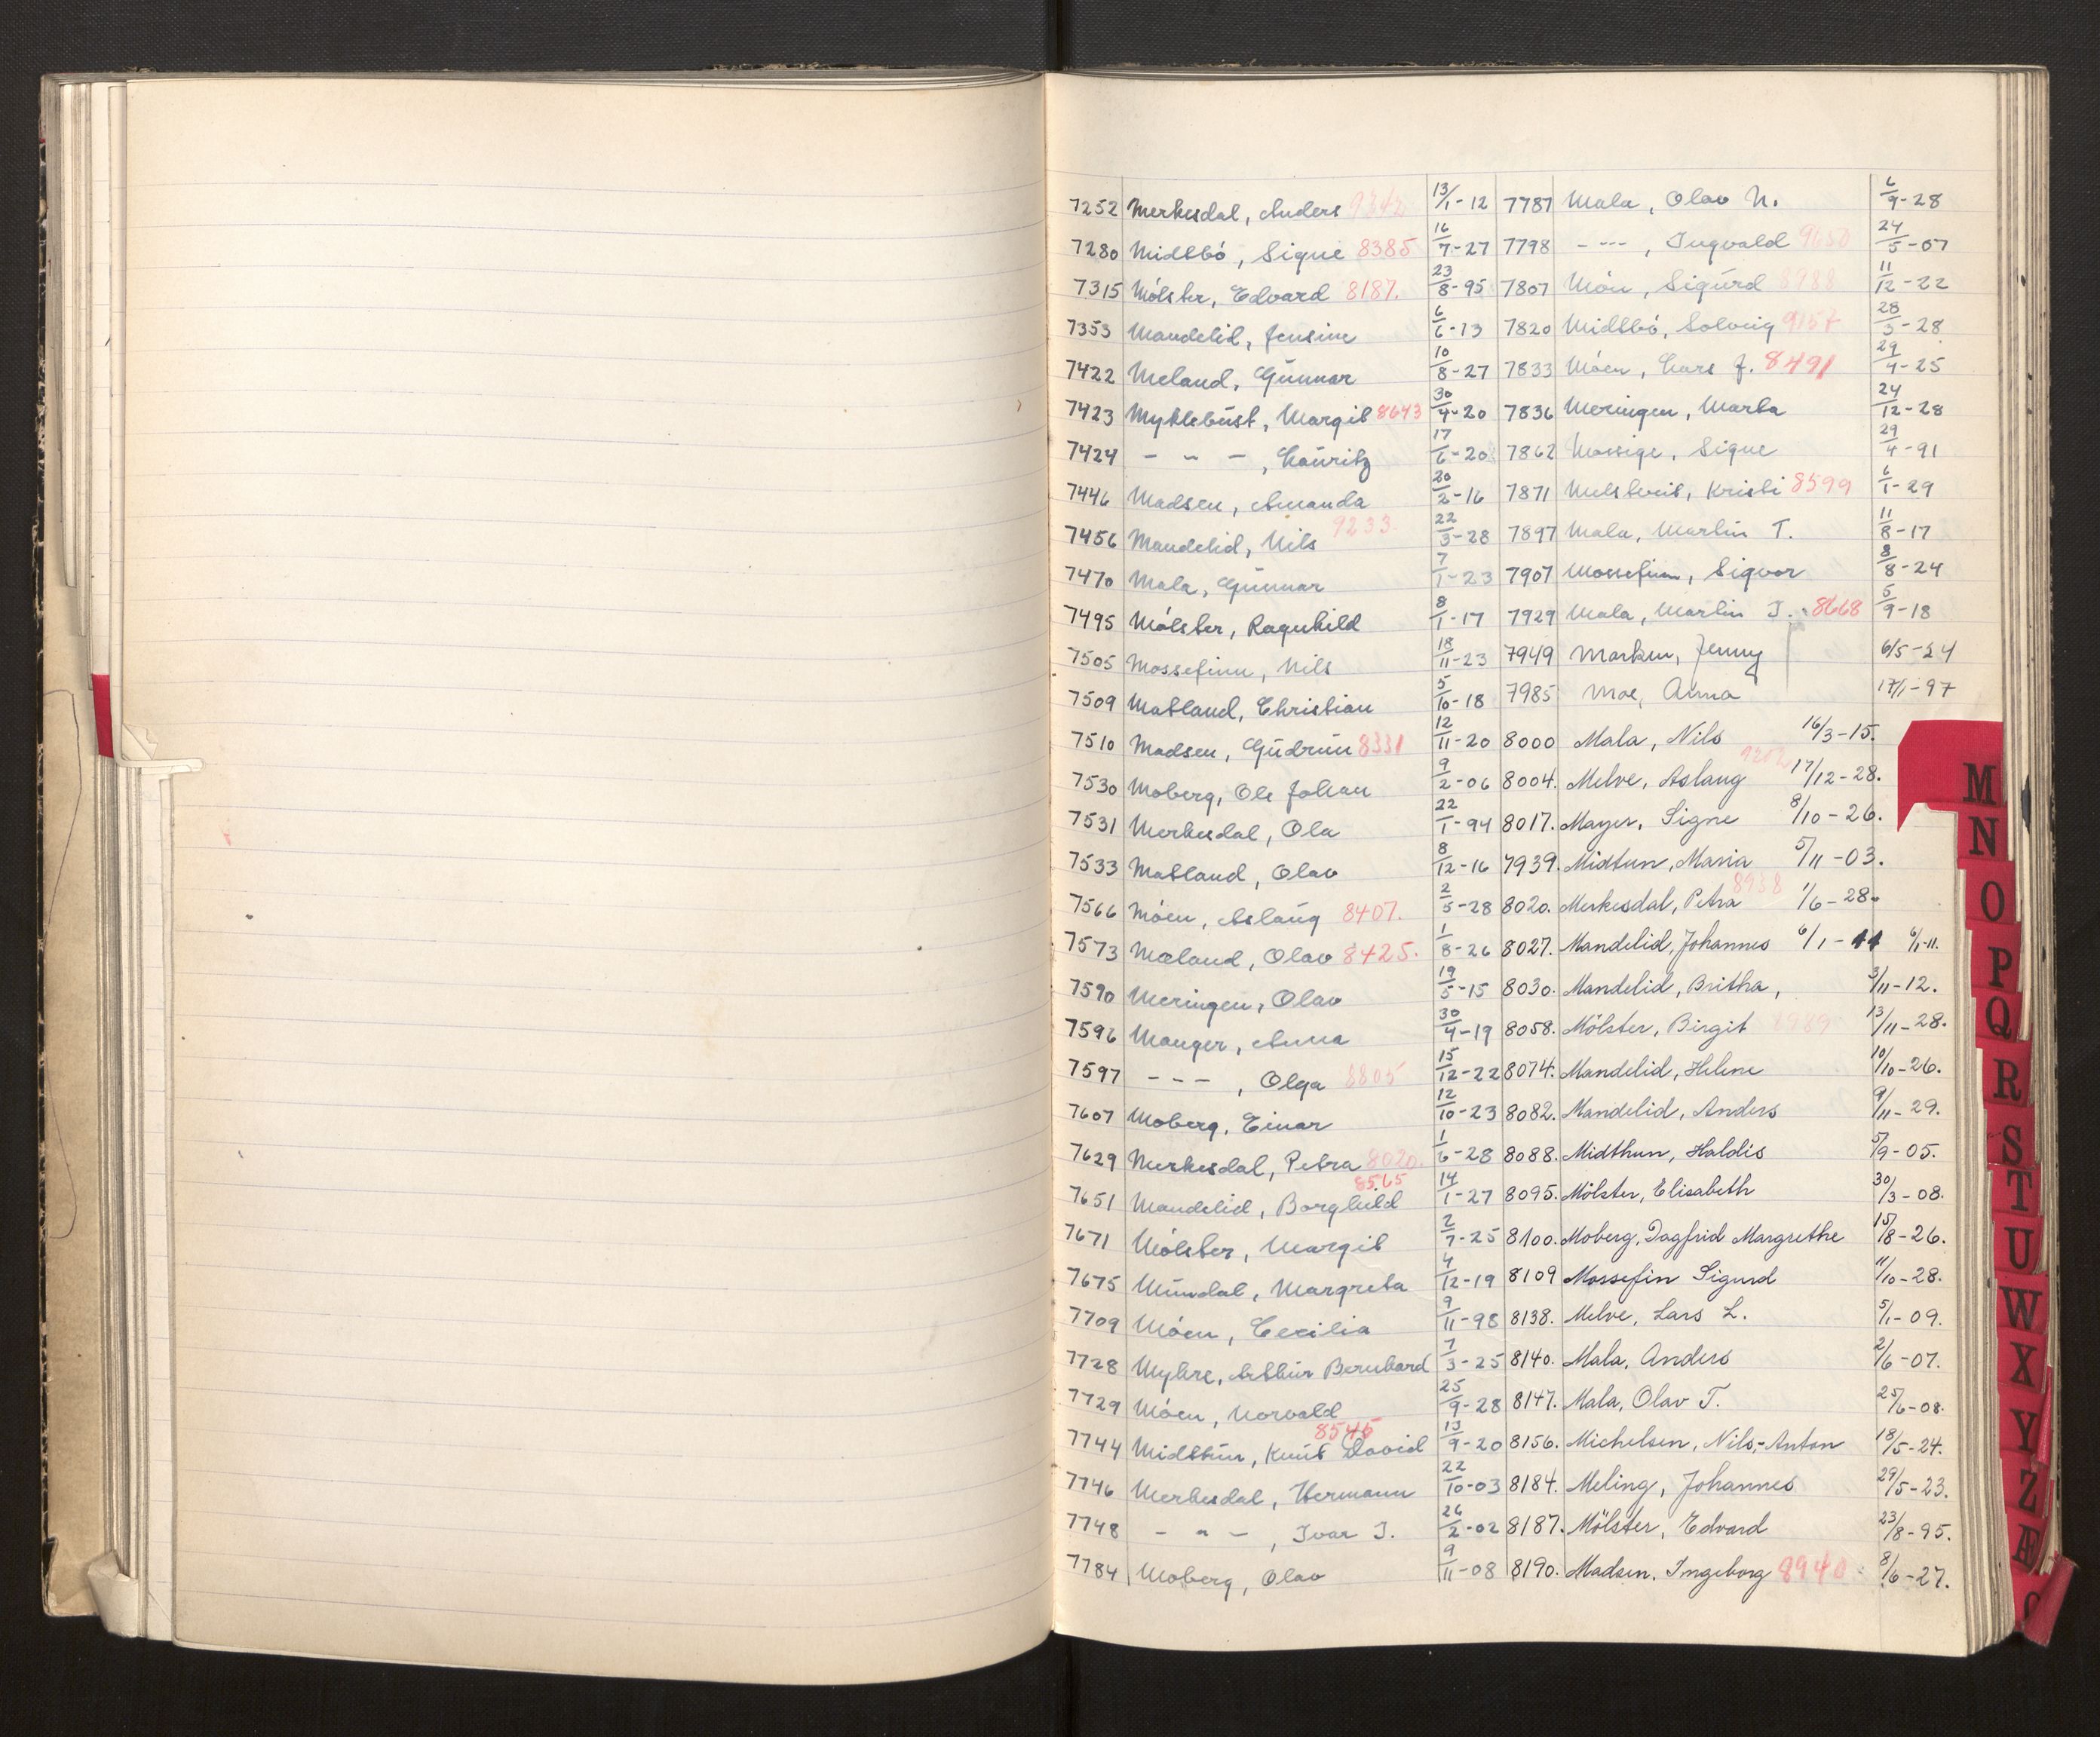 7252 Merkesdal, Anders 13/1-12
7280 Midtbö, Signe 8385 16/7-27
7315 Mölster, Edvard 8187. 23/8-95
7353 Mandelid, Jensine 6/6-13
7422 Meland, Gunnar 10/8-27
7423 Myklebust, Margit 8643 30/4-20
7424 - - -, Lauritz 17/6-20
7446 Madsen, Amanda 20/2-16
7456 Mandelid, Nils 9233. 22/3-28
7470 Mala, Gunnar 7/1-23
7495 Mölster, Ragnhild 8/1-17
7505 Mossefinn, Nils 18/11-23
7509 Matland, Christian 5/10-18
7510 Madsen, Gudrun 8331 12/11-20
7530 Moberg, Ole Johan 9/2-06
7531 Merkesdal, Ola 22/1-94
7533 Matland, Olav 8/12-16
7566 Möen, Aslaug 8407. 2/5-28
7573 Mæland, Olav 8425. 1/8-26
7590 Meringen, Olav 19/5-15
7596 Manger, Anna 30/4-19
7597 - - -, Olga 8805 15/12-22
7607 Moberg, Einar 12/10-23
7629 Merkesdal, Petra 8020. 1/6-28
7651 Mandelid, Borghild 8565 14/1-27
7671 Mölster, Margit 2/7-25
7675 Mundal, Margreta 4/12-19
7709 Möen, Cecilia 9/11-98
7728 Myhre, Arthur Bernhard 7/3-25
7729 Möen, Norvald 25/9-28
7744 Midttun, Knut David 8546 13/9-20
7746 Merkesdal, Hermann 22/10-03
7748 - " -, Ivar I. 26/2-02
7784 Moberg, Olav 9/11-08
7787 Mala, Olav N. 6/9-28
7798 - - - -, Ingvald 9050 24/5-07
7807 Möen, Sigurd 8988 11/12-22
7820 Midtbö, Solveig 9157 28/3-28
7833 Möen, Lars J. 8491 29/4-25
7836 Meringen, Marta 24/12-28
7862 Mossige, Signe 29/4-91
7871 Melstveit, Kristi 8599 6/1-29
7897 Mala, Martin T. 11/8-17
7907 Mossefinn, Sigvor 8/8-24
7929 Mala, Martin I. 8668 5/9-18
7949 Marken, Jenny 6/5-24
7985 Moe, Anna 17/1-97
8000 Mala, Nils 16/3-15.
8004. Melve, Aslaug 9202 17/12-28.
8017. Mayer, Signe 8/10-26.
7939. Midtun, Maria 5/11-03.
8020. Merkesdal, Petra 8938 1/6-28.
8027. Mandelid, Johannes 6/1-11 6/1-11.
8030. Mandelid, Britha, 3/11-12.
8058. Mölster, Birgit 8989 13/11-28.
8074. Mandelid, Helene 10/10-26.
8082. Mandelid, Anders 9/11-29.
8088. Midthun, Haldis 5/9-05.
8095. Mölster, Elisabeth 30/3-08.
8100. Moberg, Dagfrid Margrethe 15/8-26.
8109 Mossefin Sigurd 11/10-28.
8138. Melve, Lars L. 5/1-09.
8140. Mala, Anders 2/6-07.
8147. Mala, Olav T. 25/6-08.
8156. Michelsen, Nils-Anton 18/5-24.
8184. Meling, Johannes 29/5-23.
8187. Mölster, Edvard 23/8-95.
8190. Madsen, Ingeborg 8940 8/6-27.
M
N
O
P
Q
R
S
T
U
W
X
Y
Z
Æ